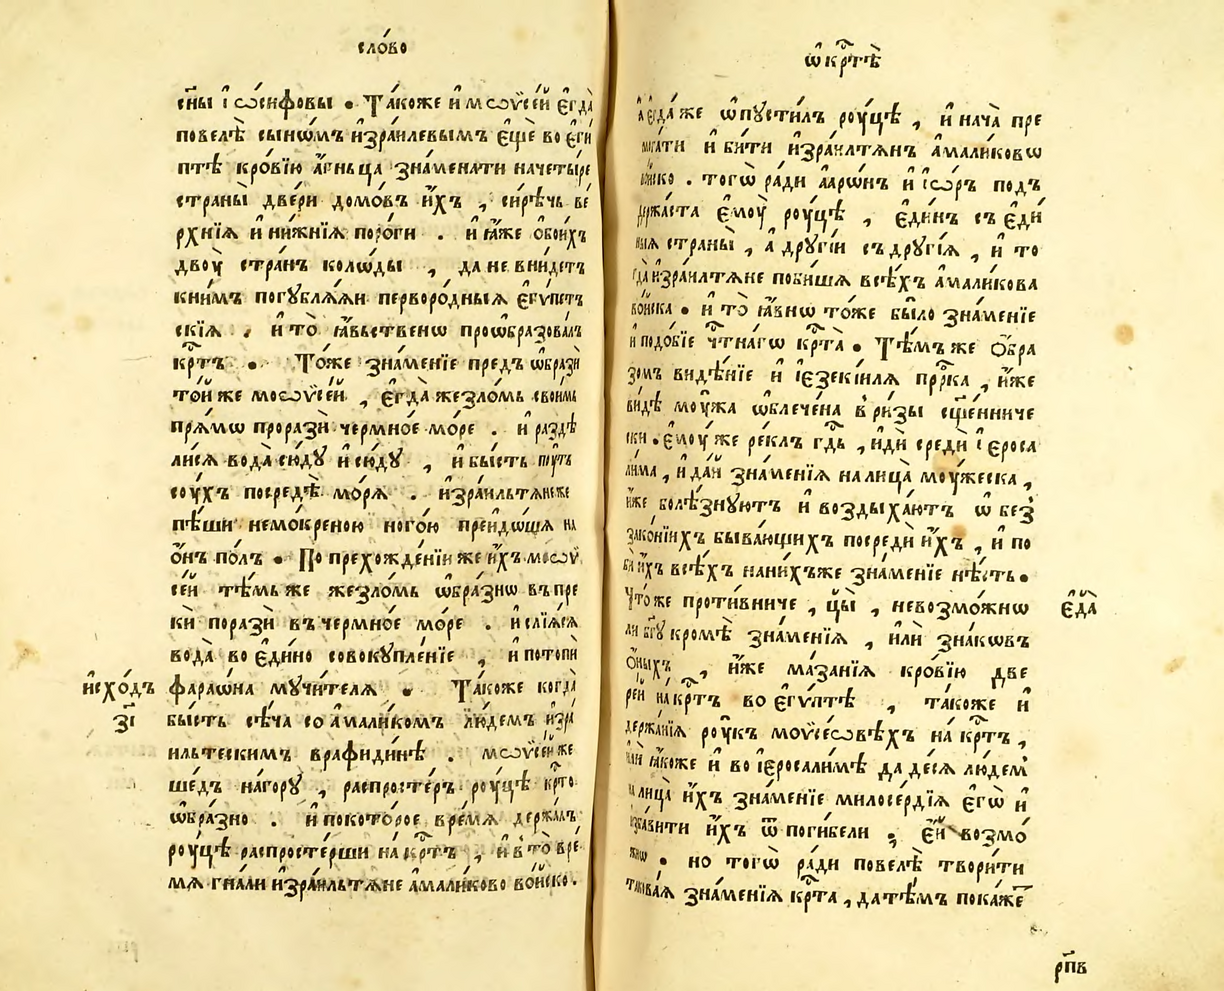 сло́во
сн҃ы і҆ѡ́сифовы . Та́коже и҆ мѡѷсе́й є҆гда̀
повелѣ̀ сынѡ́мъ и҆зра́илевымъ є҆щѐ во є҆ги́
птѣ кро́вїю а҆́гньца зна́менати начеты́ре
страны̀ две́ри домо́въ и҆́хъ , си́рѣчь ве́
рхнїѧ и҆ ни́жнїѧ поро́ги . и҆ ꙗ҆́же ѻ҆бои́хъ
двоу̀ стра́нъ колѡ́ды , да не вни́детъ
кни́мъ погублѧ́ѧи перворо́дныѧ є҆гѵ́петъ
скїѧ . и҆ то̀ ꙗ҆́вьственѡ проѡбразова́лъ
кр҇тъ . То́же зна́менїе пред̾ ѡ҆бразѝ
то́й же моѡѷсе́й , є҆гда̀ жезло́мь свои́мь
прѧ́мѡ поразѝ чермно́е мо́ре . и҆ раздѣ
ли́сѧ вода̀ сю́ду и҆ сю́ду , и҆ бы́сть пꙋ́ть
соу́хъ посредѣ̀ мо́рѧ . и҆зра́ильтѧнеже
пѣ́ши немо́креною ного́ю преидо́шѧ на
ѻ҆́нъ по́лъ . По прехожде́нїи же и҆́хъ мѡѷ
се́й тѣ́мь же жезло́мь ѡ҆́бразнѡ въ пре
кѝ поразѝ въ чермно́е мо́ре . и҆ слїѧ́сѧ
вода̀ во є҆ди́но совокꙋпле́нїе , и҆ потопѝ
и҆схо́дъ фараѡ́на мꙋчи́телѧ . Та́коже когда̀
з҃і бы́сть сѣ́ча со а҆мали́комъ лю́демъ и҆зра́
ильтескимъ врафиди́нѣ . мѡѷсе́й же
ше́дъ на́гору , распросте́ръ ро́уцѣ кр҇то
ѡ҆́бразно . и҆ покото́рое вре́мѧ держа́лъ
ро́уцѣ распросте́рши на кр҇тъ , и҆ в̾ то̀ вре́
мѧ гна́ли и҆зра́ильтѧне а҆мали́ково во́йско .
ѡ҆ кр҇тѣ̀
а҆ є҆гда́ же ѡ҆пусти́лъ ро́уцѣ , и҆ нача̀ пре
мога́ти и҆ би́ти и҆зра́илтѧнъ а҆мали́ковѡ
во́йско . тогѡ̀ ра́ди а҆арѡ́нъ и҆ і҆ѡ́ръ под̾
держа́ста є҆моу̀ ро́уцѣ , є҆ди́нъ съ є҆ди́
ныѧ страны̀ , а҆ дрꙋгі́й съ дрꙋгі́ѧ , и҆ то
гда̀ и҆зра́илтѧне поби́шѧ всѣ́хъ а҆мали́кова
во́йска . и҆ то̀ ꙗ҆́внѡ то́же бы́ло зна́менїе
и҆ подо́бїе ч҇тна́гѡ кр҇та̀ . Тѣ́мъ же ѻ҆́бра
зомъ видѣ́нїе и҆ і҆езекі́илѧ пр҇рка , и҆́же
ви́дѣ моу́жа ѡ҆блече́на в̾ ри́зы сщ҃е́нниче
ски . є҆моу́ же ре́клъ гд҇ь , и҆дѝ средѝ і҆ероса
ли́ма , и҆ да́й зна́менїѧ на лица̀ моу́жеска ,
и҆́же болѣ́знꙋютъ и҆ воздыха́ютъ ѡ҆ без̾
зако́нїихъ быва́ющихъ посредѝ и҆́хъ , и҆ по
бі́й и҆́хъ всѣ́хъ нани́хъже зна́менїе нѣ́сть .
Что́ же проти́вниче , цы̀ , невозмо́жнѡ є҆да̀
ли бг҃ꙋ кромѣ̀ зна́менїѧ , и҆лѝ зна́кѡвъ
ѻ҆́ныхъ , и҆́же ма́занїѧ кро́вїю две
ре́й на кр҇тъ во є҆гѵ́птѣ , та́коже и҆
держа́нїѧ роу́къ моѷсе́ѡвѣхъ на́ кр҇тъ ,
и҆лѝ ꙗ҆́коже и҆ во і҆еросали́мѣ да де́сѧ лю́дем̾
на лица̀ и҆́хъ зна́менїе милосе́рдїѧ є҆гѡ̀ и҆
и҆зба́вити и҆́хъ ѿ поги́бели ; є҆́й возмо́
жнѡ . но тогѡ̀ ра́ди повелѣ̀ твори́ти
такова́ѧ зна́менїѧ кр҇та̀ , да тѣ́мъ пока́же
рп҃в